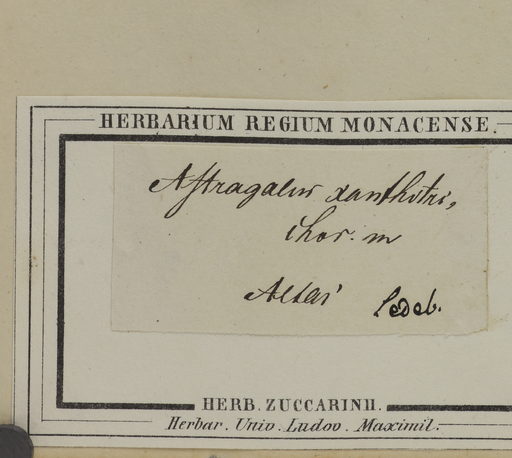 HERBARIUM REGIUM MONACENSE.
Astragalus xanthotri,
chos. m
Altai Ledeb.
HERB. ZUCCARINII.
Herbar. Univ. Ludov. Maximil.